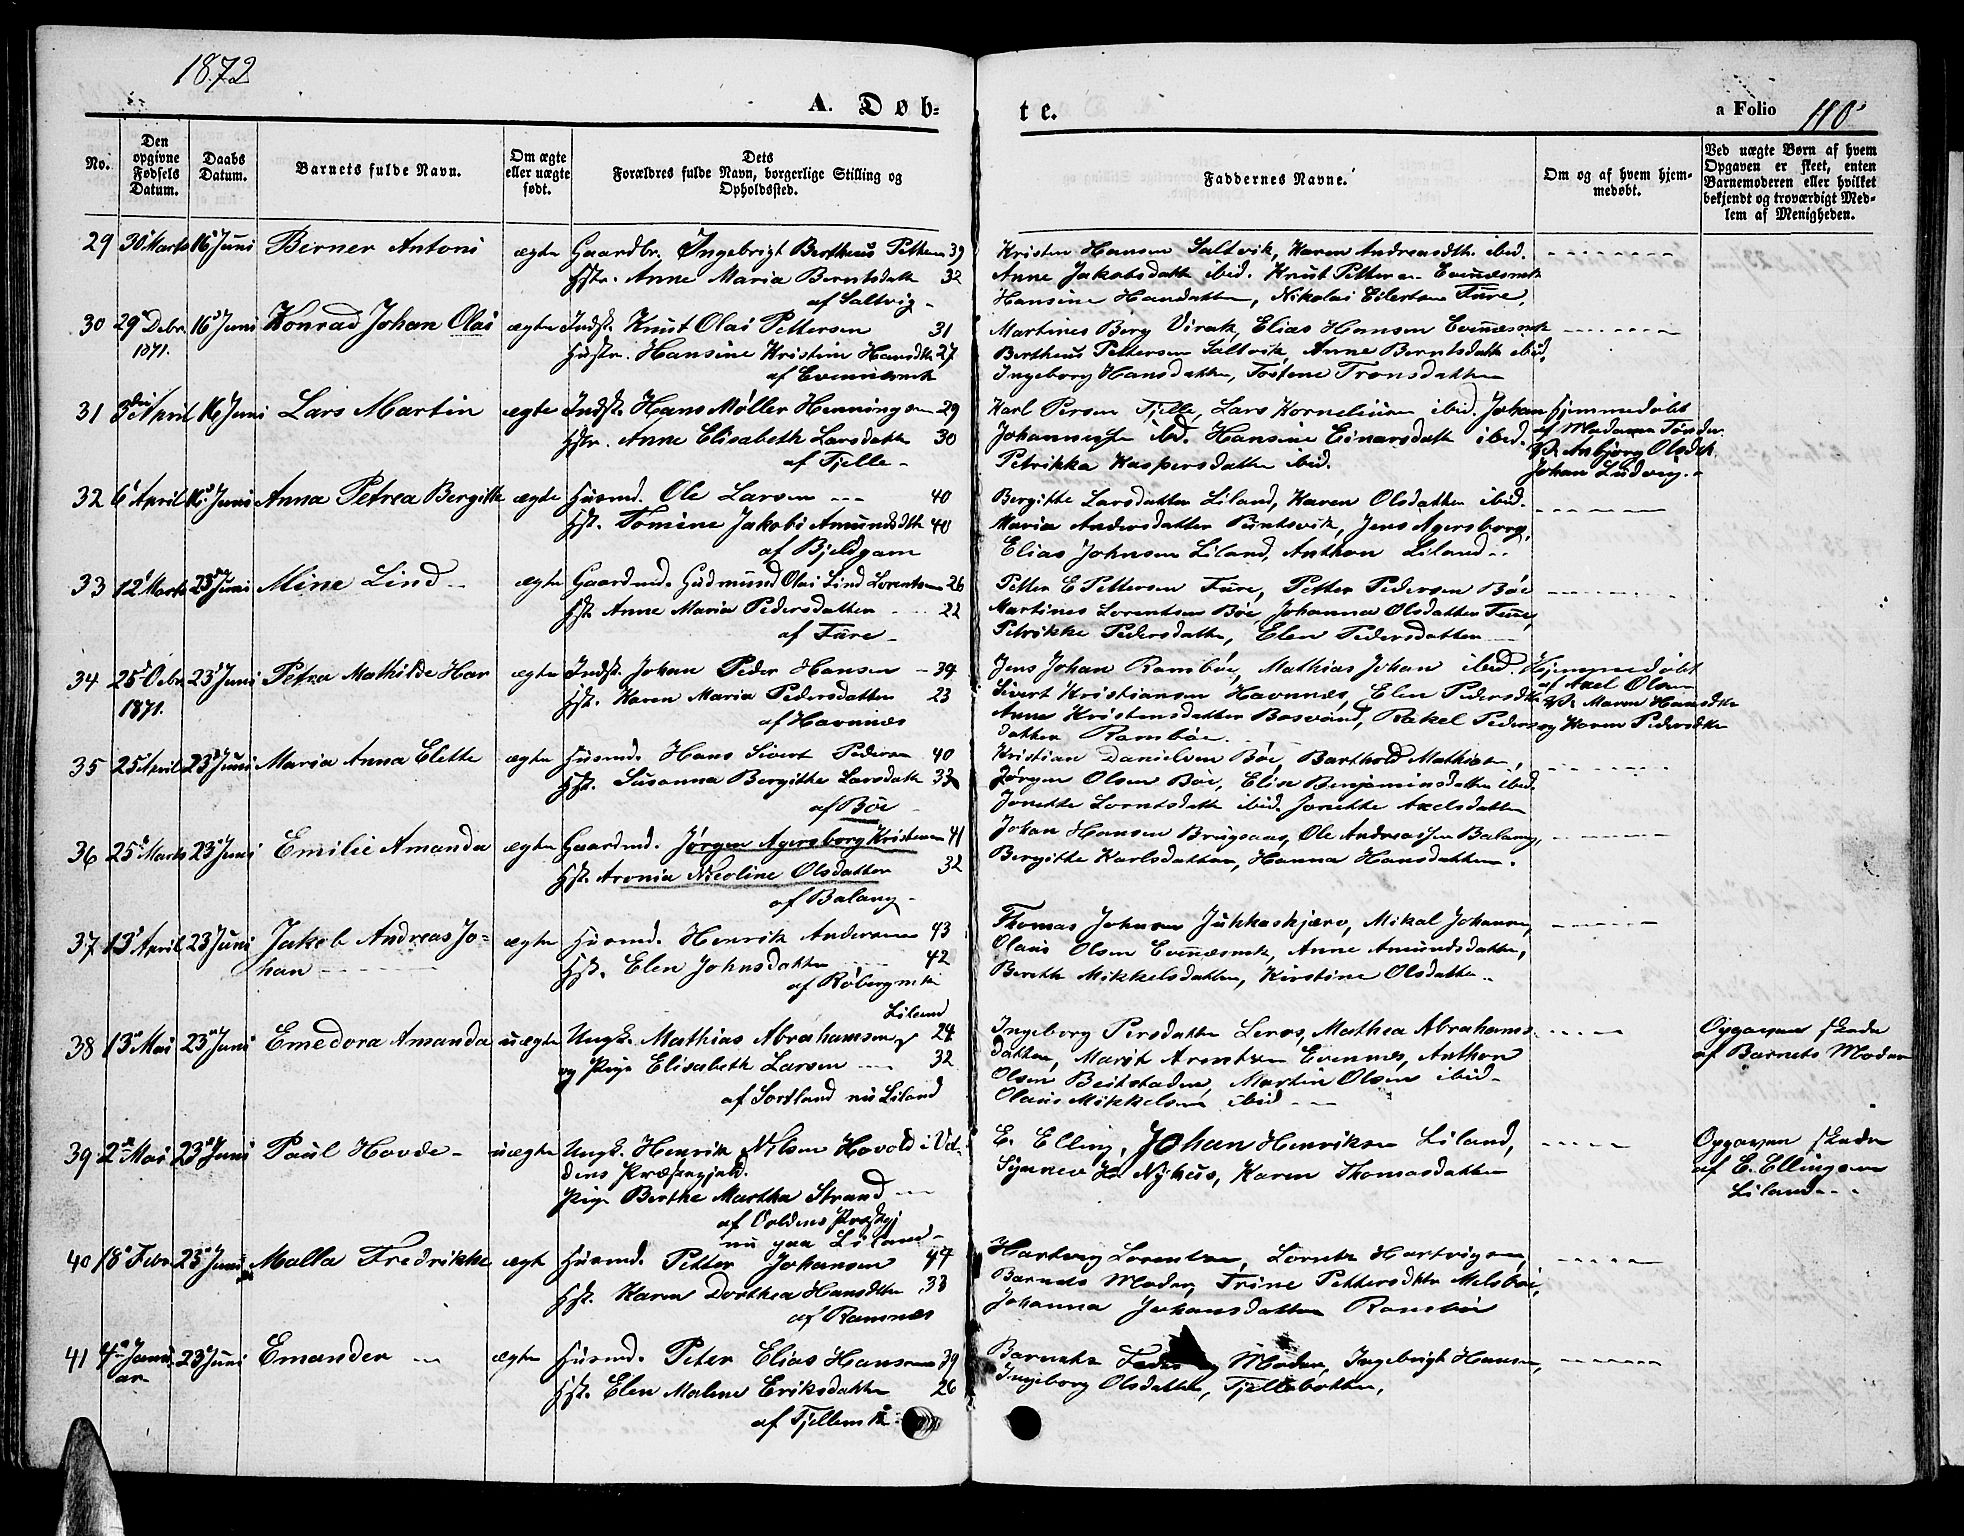 1872
A. Døb-
te.
a Folio 110
No.
Den opgivne Fødsels Datum.
Daabs Datum.
Barnets fulde Navn.
Om ægte eller uægte født.
Dets Forældres fulde Navn, borgerlige Stilling og Opholdssted.
Faddernes Navne.
Om og af hvem hjemmedøbt.
Ved uægte Børn af hvem Opgaven er skeet, enten Barnemoderen eller hvilket bekjendt og troværdigt Medlem af Menigheden.
29 30 Marts 16 Juni Berner Antoni ægte Gaardbr. Ingebrigt Bertheus Petters 39
Hstr. Anne Maria Berntsdatt 32
af Saltvig
Kristen Hansen Saltvik, Karen Andreasdtr ibid.
Anne Jakobsdatt ibid. Knut Pettersen Evenæsmk
Hansine Hansdatter, Nikolai Eilertsen Fure.
30 29 Debr 1871. 16 Juni Konrad Johan Olai ægte Indst. Knut Olai Pettersen 31
Hustr. Hansine Kristine Hansdtr 27
af Evenæsmk
Martines Berg Virak, Elias Hansen Evenæsmk
Bertheus Pettersen Saltvik, Anne Berntsdatt ibid.
Ingeborg Hansdatter, Tronsdatter
31 3 April 16 Juni Lars Martin ægte Indst. Hans Møller Henningsen 29
Hstr. Anne Elisabeth Larsdatt 30
af Tjelle
Karl Persen Tjelle, Lars Korneliusen ibid. Johan
Johannesen ibid. Hansine Einarsdatt ibid.
Petrikka Kaspersdatter ibid.
Hjemmedøbt
af Madame
Anbjørg Olsdtr
Johan Ludvig
32 6 April 16 Juni Anna Petrea Bergitte ægte Husmd. Ole Larsen 40
Hst. Tomine Jakobi Amundsdtr 40
af Bjeldgam
Bergitte Larsdatter Liland, Karen Olsdatter ibid.
Maria Andersdatter, Jens Agersborg
Elias Johnsen Liland, Anthon Liland
33 12 Marts 23 Juni Mine Lind ægte Gaardmd. Gudmund Olai Lind Lorentsen 26
Hst. Anne Maria Pedersdatter 22
af Fure
Petter E Pettersen Fure, Petter Pedersen Bøe
Martines Lorentsen Bøe, Johanna Olsdatter Fure,
Petrikke Pedersdatter, Elen Pedersdatter
34 25 Debr 1871. 23 Juni Petra Mathilde Har ægte Indst. Johan Peder Hansen 39
Hst. Karen Maria Pedersdatter 23
af Havnnæs
Jens Johan Ramsbøe, Mathias Johan ibid.
Sivert Kristiansen Havnnæs, Elen Pedersdtr
Anne Kristensdatter Bosvand, Rakel Peders-
datter Ramsbøe
Hjemmedøbt
af Axel Olsen
Maren Hansdtr
og Karen Pedersdtr
35 25 April 23 Juni Maria Anna Elette ægte Husmd. Hans Sivert Pedersen 40
Hst. Susanna Bergitte Larsdatt 33
af Bøe
Kristian Danielsen Bøe, Barthold Mathisen,
Jørgen Olsen Bøe, Elise Benjaminsdatter ibid.
Jonette Lorntsdatt ibid. Jonette Axelsdatter
36 25 Marts 23 Juni Emilie Amanda ægte Gaardmd. Jørgen Agersborg Kristensen 41
Hst. Aronia Nicoline Olsdatter 32
af Balang
Johan Hansen Brugsaas, Ole Andreassen Balang,
Bergitte Karlsdatter, Hanna Hansdatter.
37 13 April 23 Juni Jakob Andreas Jo-
han
ægte Husmd. Henrik Andersen 43
Hst. Elen Johnsdatter 42
af Røbergmk
Thomas Johnsen Juhkaskjærv, Mikal Johansen,
Olaus Olsen Evenæsmk, Anne Amundsdatter,
Bereth Mikkelsdatter, Kirstine Olsdatter
38 13 Mai 23 Juni Emedora Amanda uægte Ungk. Mathias Abrahamsen Liland 24
og Pige Elisabeth Larsen 32
af Sortland nu Liland
Ingeborg Persdatter Leros, Mathea Abrahams-
datter, Marit Arentsen Evennes, Anthon
Olsen Beitstaden, Martin Olsen ibid
Olaus Mikkelsen ibid
Opgaven skede
af Barnets Moder
39 2 Mai 23 Juni Paul Hovde uægte Ungk. Henrik Nilsen Hovold i Vol-
dens Præstegjeld.
Pige Berthe Martha Strand
af Voldens Præstgj
nu paa Liland
E. Elling, Johan Henriksen Liland,
Synnev Nyhus, Karen Thomasdatter
Opgaven skede
af E. Ellingsen
Liland
40 18 Febr 23 Juni Malla Fredrikke ægte Husmd. Petter Johansen 47
Hst. Karen Dorthea Hansdtr 33
af Ramnæs
Hartvig Lorentsen, Lorentz Hartvigsen,
Barnets Moder, Trine Pettersdtr Melsbøe,
Johanna Johansdatter Ramsbøe
41 4 Janu-
ar 23 Juni Emander ægte Husmd. Peter Elias Hansen 39
Hst. Elen Malene Eriksdatter 26
af Tjellemk
Barnets Fader og Moder, Ingebrigt Hansen,
Ingeborg Olsdatter, Tjellebotten,